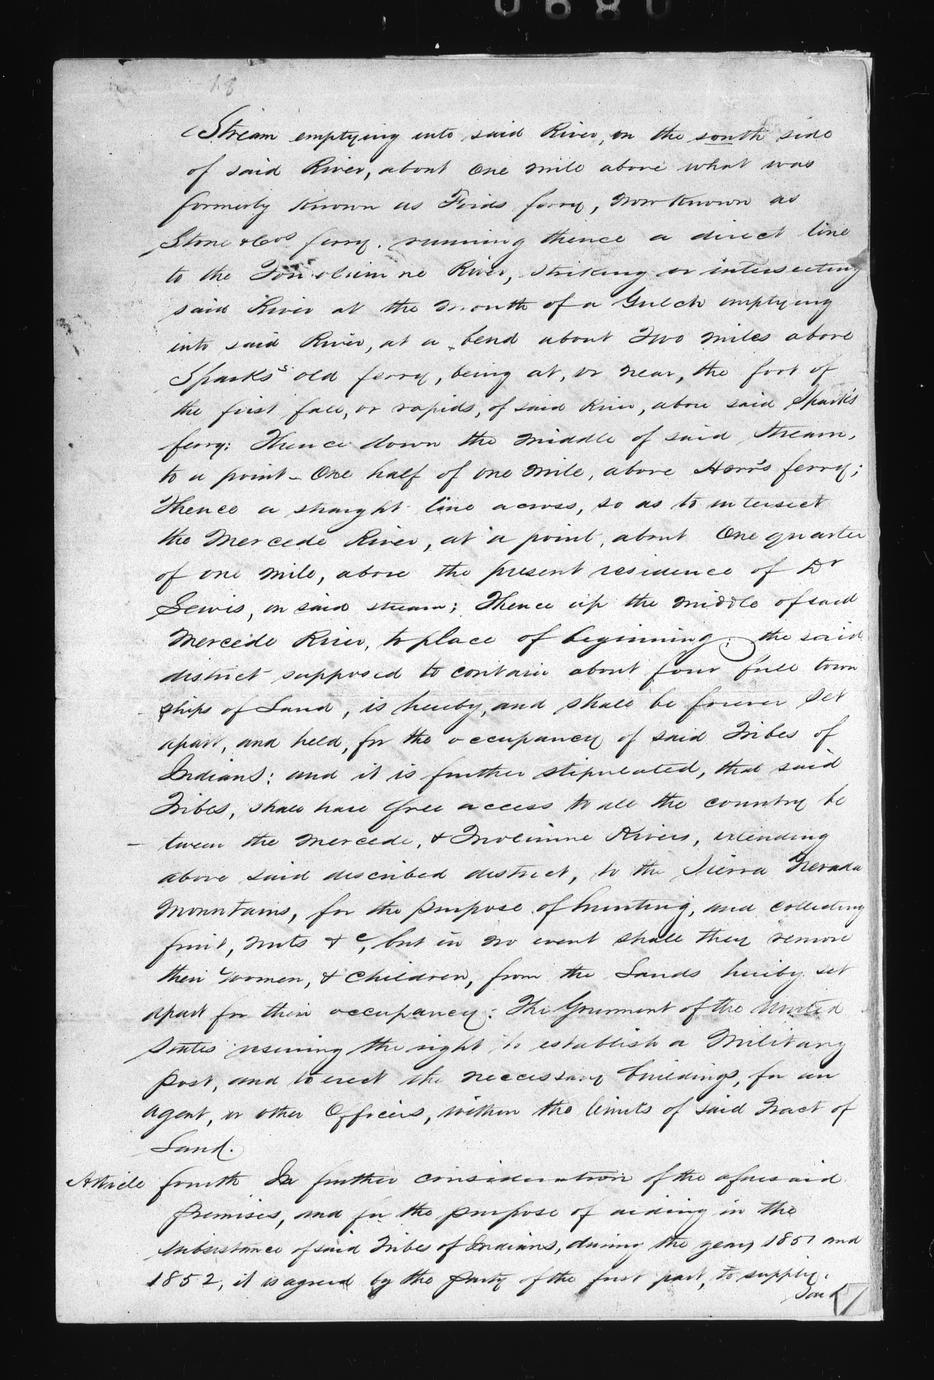 0680
18
Stream emptying into said River, on the south side
of said River, about One mile above what was
formerly known as Fords ferry, now known as
Stone & Cos ferry. running thence a direct line
to the Touolumne River, striking or intersecting
said River at the mouth of a Gulch emptying
into said River, at a bend about Two miles above
Sparks' old ferry, being at, or near, the foot of
the first fall, or rapids, of said River, above said Spark's
ferry; Thence down the middle of said Stream,
to a point - One half of one mile, above Harr's ferry;
Thence a straight line across, so as to intersect
the Mercede River, at a point, about One quarter
of one mile, above the present residence of Dr
Lewis, on said stream; Thence up the middle of said
Mercede River, to place of beginning; the said
district supposed to contain about four full town
ships of Land, is hereby, and shall be forever Set
apart, and held, for the occupancy of said Tribes of
Indians; and it is further stipulated, that said
Tribes, shall have free access to all the country be
tween the Mercede, & Tuolumne Rivers, extending
above said described district, to the Sierra Nevada
Mountains, for the purpose of hunting, and collecting
fruit, nuts &c, but in no event shall they remove
their Women, & Children, from the Lands hereby set
apart for their occupancy: The Government of the United
States reserving the right to establish a Military
Post, and to erect the neccessary buildings, for an
agent, or other Officers, within the limits of said Tract of
Land.
Article fourth In further consideration of the aforesaid
Premises, and for the purpose of aiding in the
subsistance of said Tribes of Indians, during the years 1851 and
1852, it is agreed by the Party of the first part, to supply.
Said
7